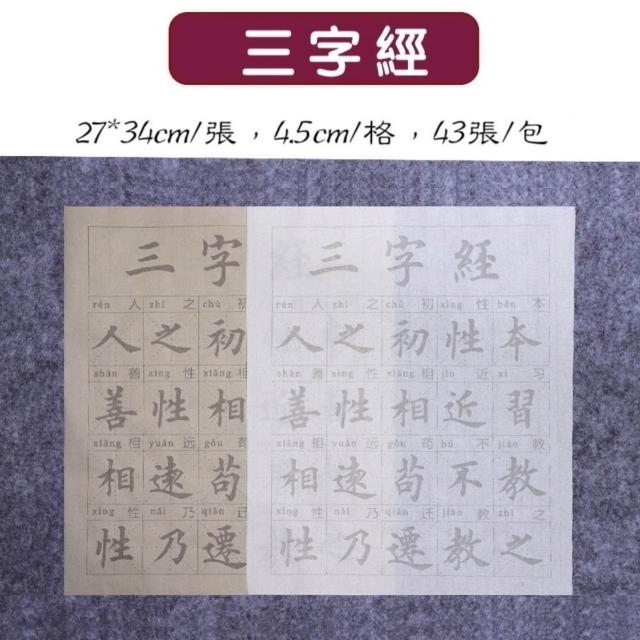 三字經
27*34cm/張，4.5cm/格，43張/包
三字 三字經
rén 人 zhī 之 chū 初 rén 人 zhī 之 chū 初 xìng 性 běn 本
人之初 人之初性本
shàn 善 xìng 性 xiāng 相 shàn 善 xìng 性 xiāng 相 jìn 近 xí 习
善性相 善性相近習
xiāng 相 yuǎn 远 gǒu 苟 xiāng 相 yuǎn 远 gǒu 苟 bú 不 jiào 教
相遠苟 相遠苟不教
xìng 性 nǎi 乃 qiān 迁 xìng 性 nǎi 乃 qiān 迁 jiào 教 zhī 之
性乃遷 性乃遷教之